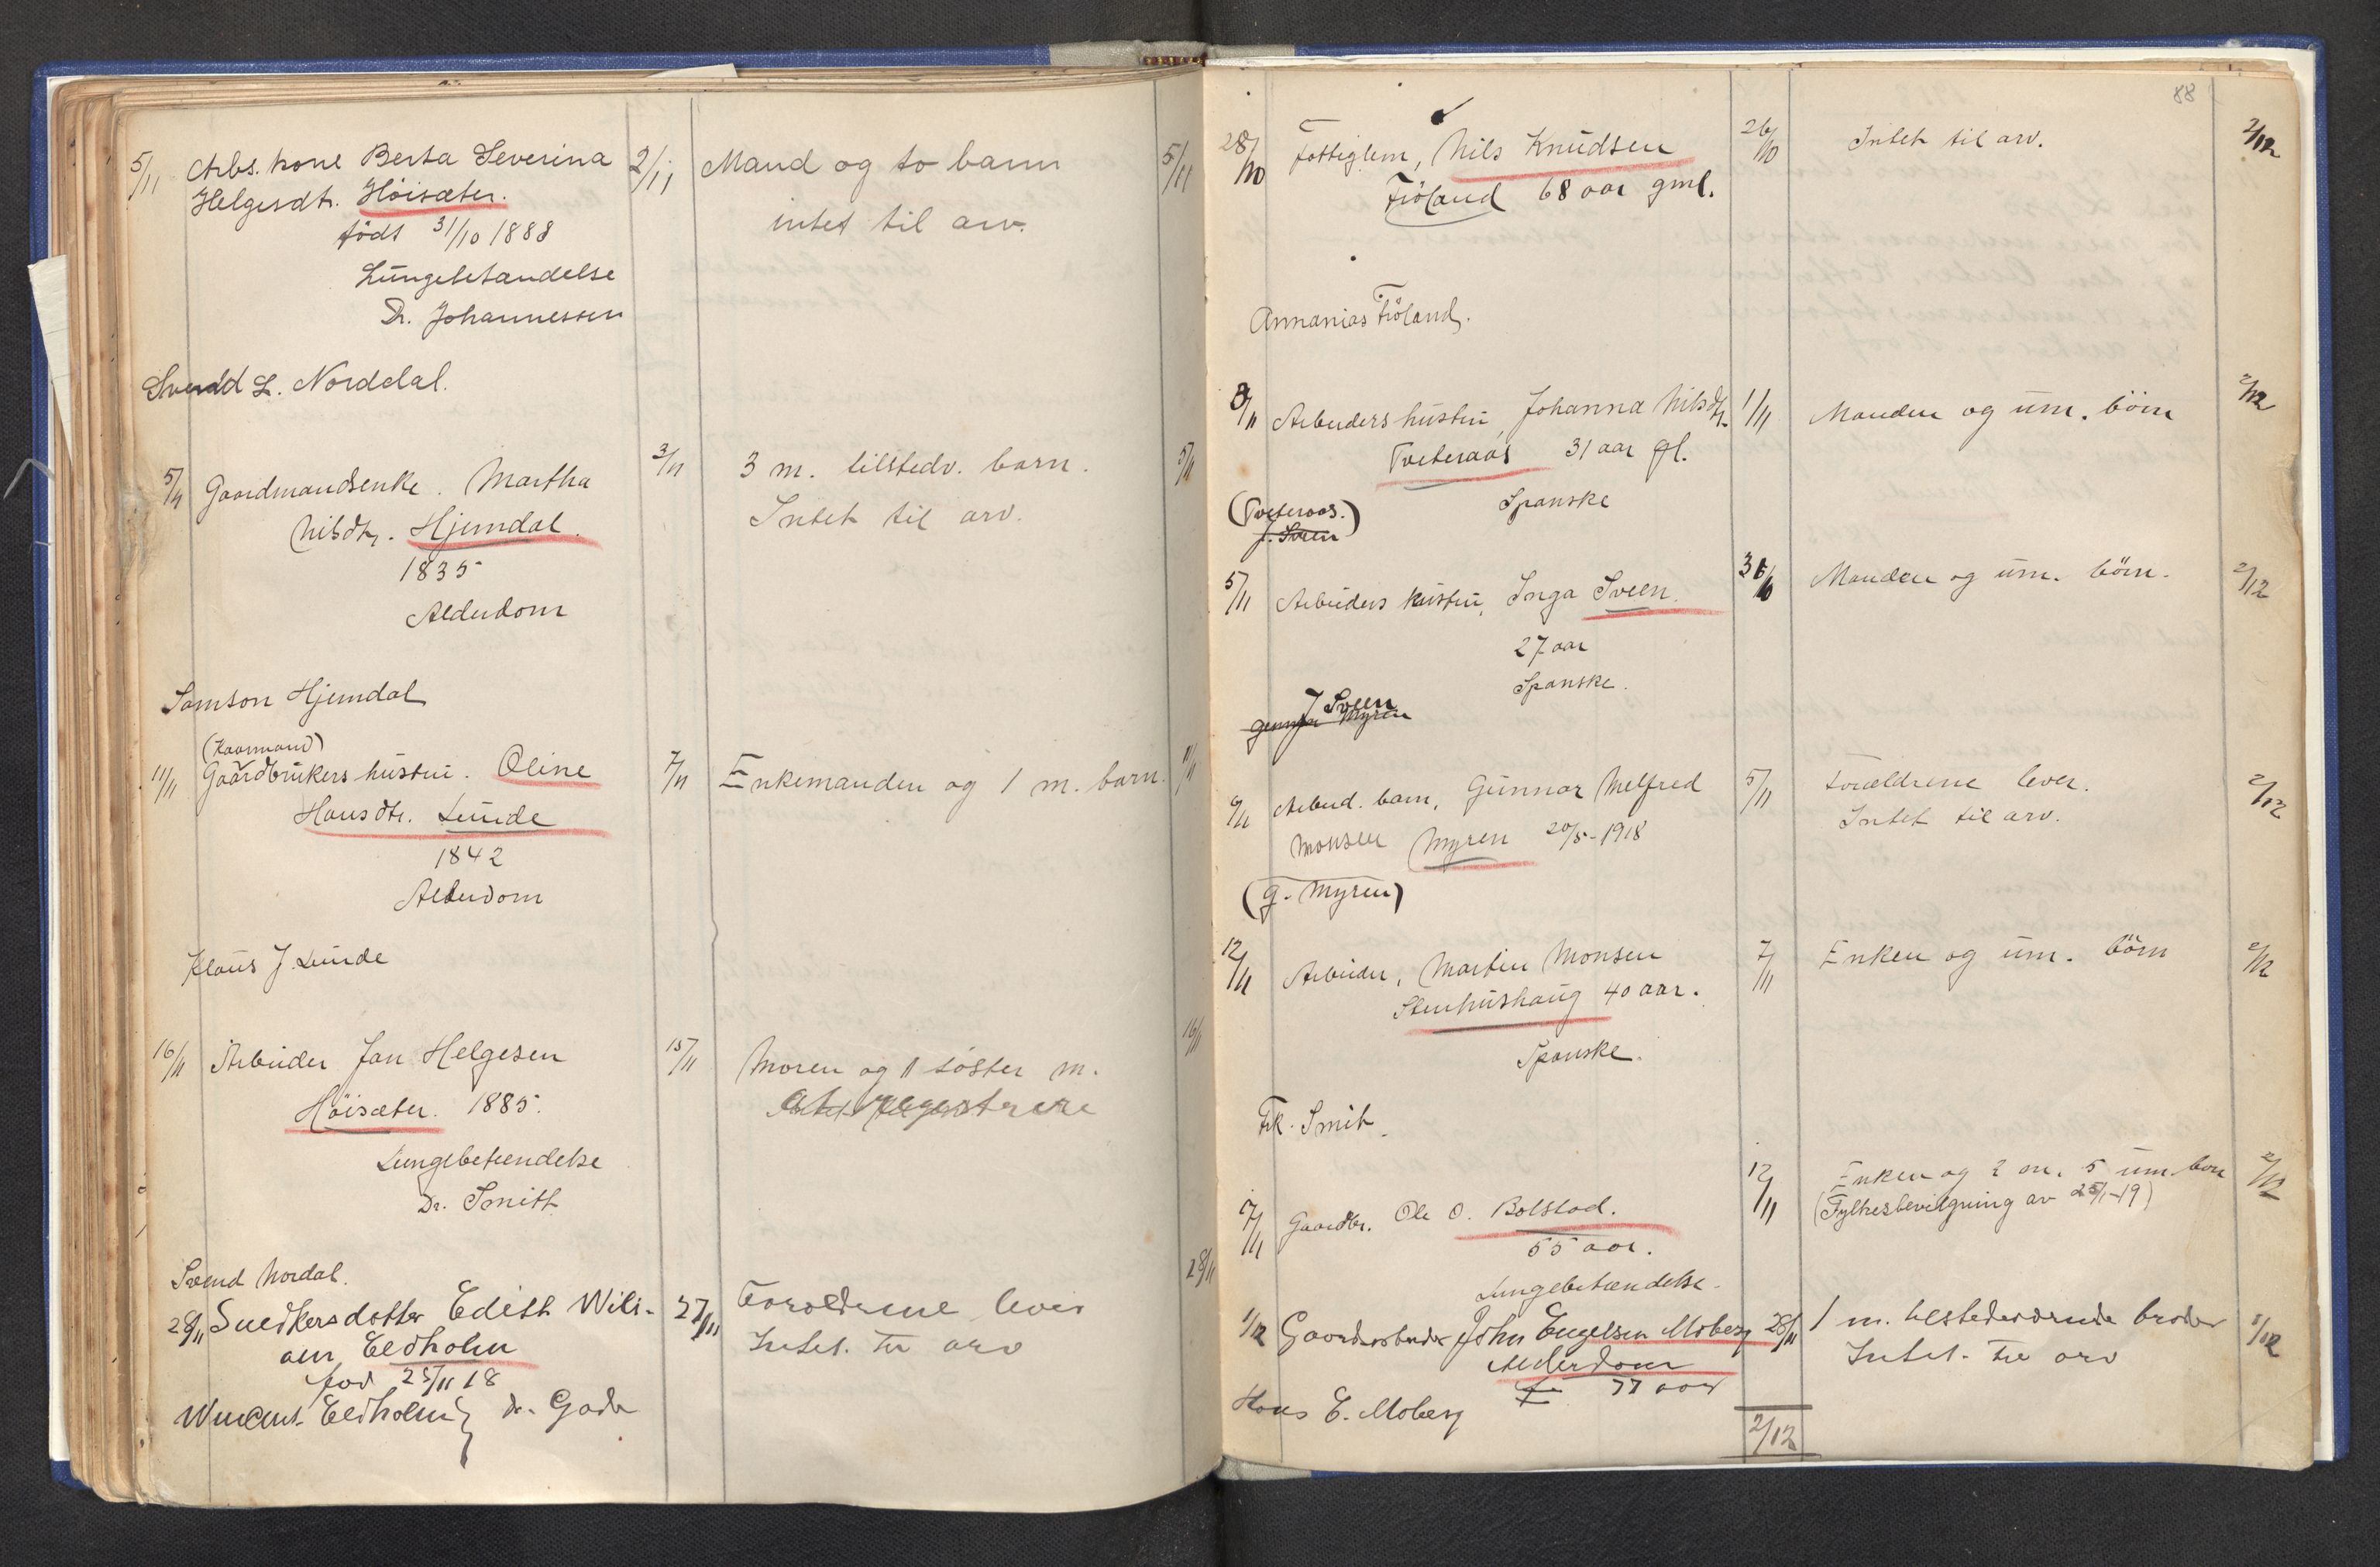 5/11 Arbs. kone Berta Severina 2/11 Mand og to barn 5/11
Helgesdtr. Höisæter. intet til arv.
födt 31/10 1888
Lungebetændelse
Dr. Johannessen
Svend L. Norddal.
5/11 Gaardmandsenke. Martha 3/11 3 m. tilstedv. barn. 5/11
Nilsdtr. Hjemdal. Intet til arv.
1835
Alderdom
Samson Hjemdal
(Kaarmand)
11/11 Gaardbrukers hustru. Oline 7/11 Enkemanden og 1 m. barn. 11/11
Hansdtr. Lunde
1842
Alderdom
Klaus J. Lunde
16/11 Arbeider Jan Helgesen 15/11 Moren og 1 söster m. 16/11
Höisæter. 1885. at registrere
Lungebetændelse
Dr. Smith
Svend Nordal.
28/11 Snedkersdotter Edith Wili- 27/11 Foreldrene lever 28/11
am Eldholm Intet til arv
fød 25/11 18
Wincent Eldholm Dr. Gade
88
28/10 Fattiglem, Nils Knudsen 26/10 Intet til arv. 2/12
Fröland 68 aar gml.
Annanias Fröland.
8/11 Arbeiders hustru, Johanna Nilsdtr. 1/11 Manden og um. börn 2/12
Tveteraas 31 aar gl.
Spanske
(Tveteraas.)
J. Sveen
5/11 Arbeiders hustru, Inga Sveen. 31/10 Manden og um. börn. 2/12
27 aar
Spanske.
J Sveen
Myren
9/11 Arbeid. barn, Gunnar Melfred 5/11 Forældrene lever. 2/12
Monsen Myren 20/5-1918 Intet til arv.
(G. Myren)
12/11 Arbeider, Martin Monsen 7/11 Enken og um. börn 2/12
Stenhushaug 40 aar.
Spanske.
Frk. Smit.
17/11 Gaardbr. Ole O. Bolstad. 12/11 Enken og 2 m. 5 um. born 2/12
55 aar. (Fylkesbevilgning av 25/1-19)
Lungebetændelse.
1/12 Gaardsarbeider John Engelsen Moberg 28/11 1 m. tilstedeværende broder 1/12
Alderdom Intet til arv
77 aar
Hans E. Moberg
2/12